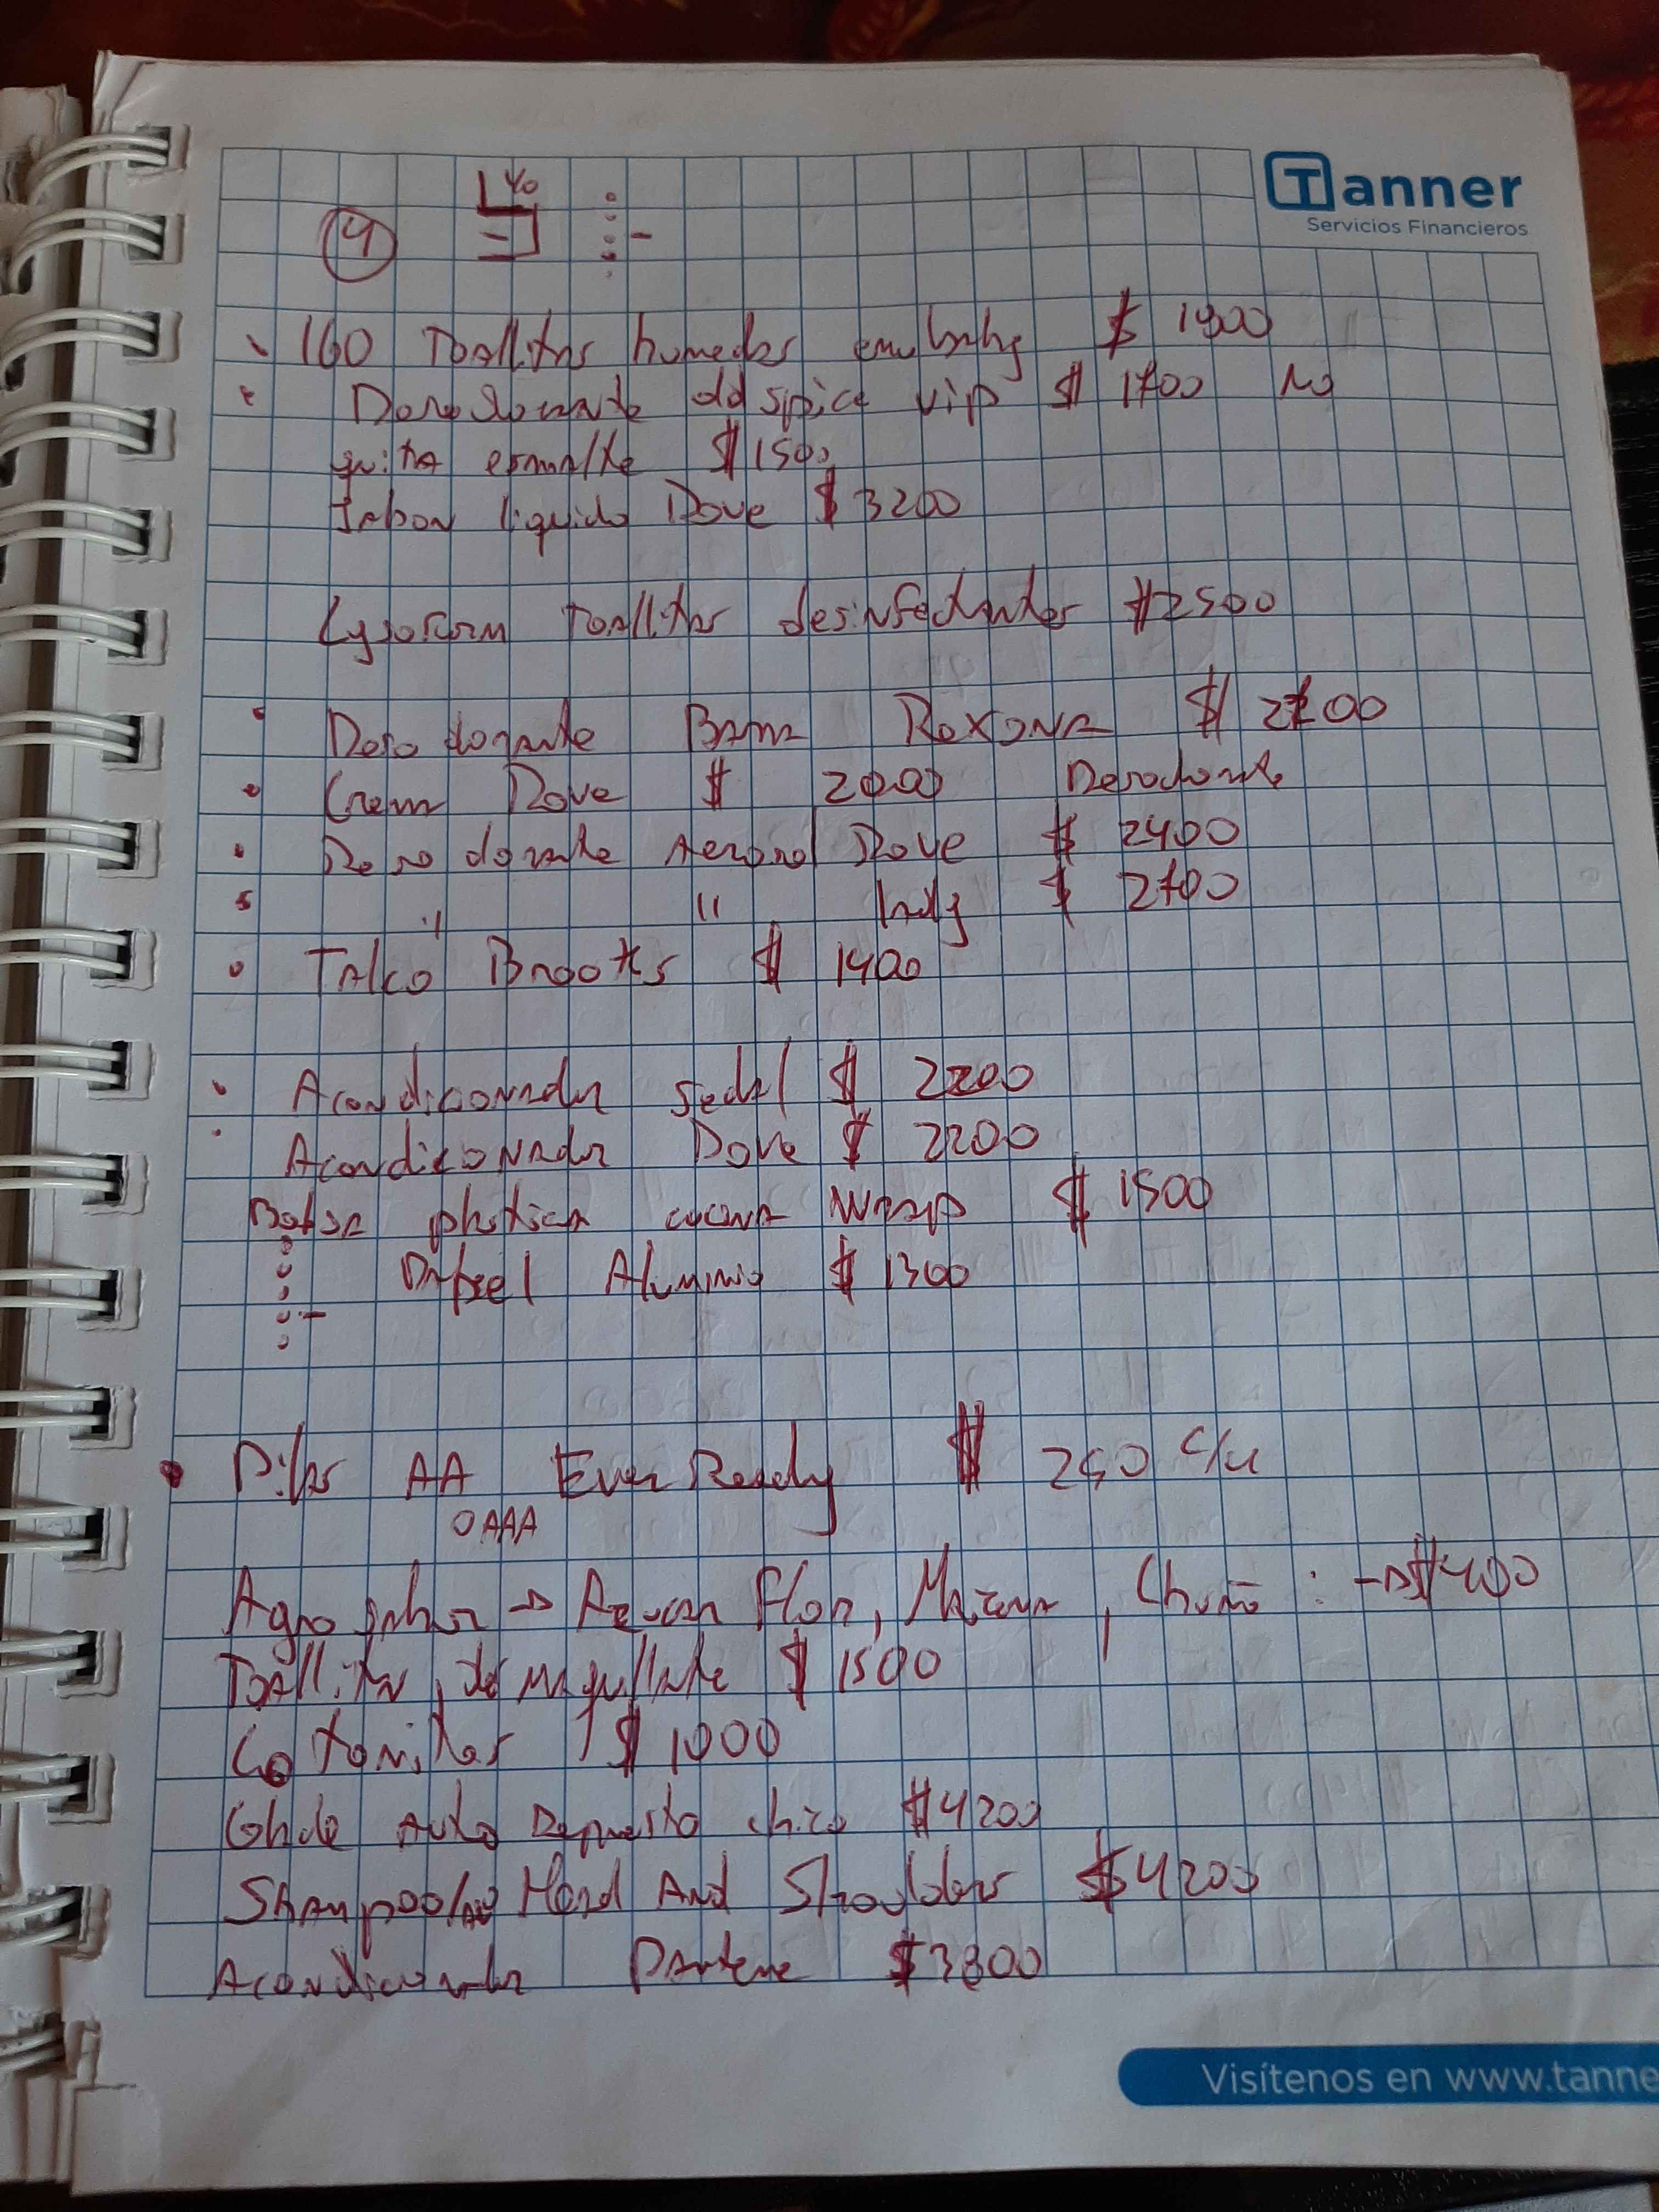 Tanner
Servicios Financieros
4
160 Toallitas humedas emubaby $ 1900
Desodorante old spice vip $ 1700 No
quita esmalte $ 1500
Jabon liquido Dove $ 3200
Lysoform Toallitas desinfectantes $ 2500
Desodorante Barra Rexona $ 2200
Crema Dove $ 2000 Desodorante
Desodorante Aerosol Dove $ 2400
" " lady $ 2700
Talco Brooks $ 1400
Acondicionador Sedal $ 2200
Acondicionador Dove $ 2200
Bolsa plastica cocina Wrap $ 1500
Papel Aluminio $ 1300
Pilas AA Ever Ready $ 250 c/u
O AAA
Agrosabor → Azucar Flor, Maicena, Chuño : → $ 400
Toallitas desmaquillante $ 1500
Cotonitos $ 1000
Glade Auto Repuesto chico $ 4200
Shampoo Head And Shoulders $ 4200
Acondicionador Pantene $ 3800
Visítenos en www.tanne